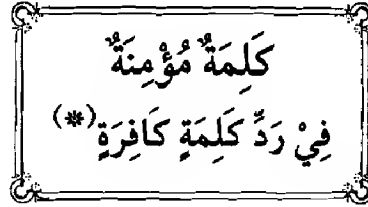 كَلِمَةٌ مُؤْمِنَةٌ
فِيْ رَدِّ كَلِمَةٍ كَافِرَةٍ(*)